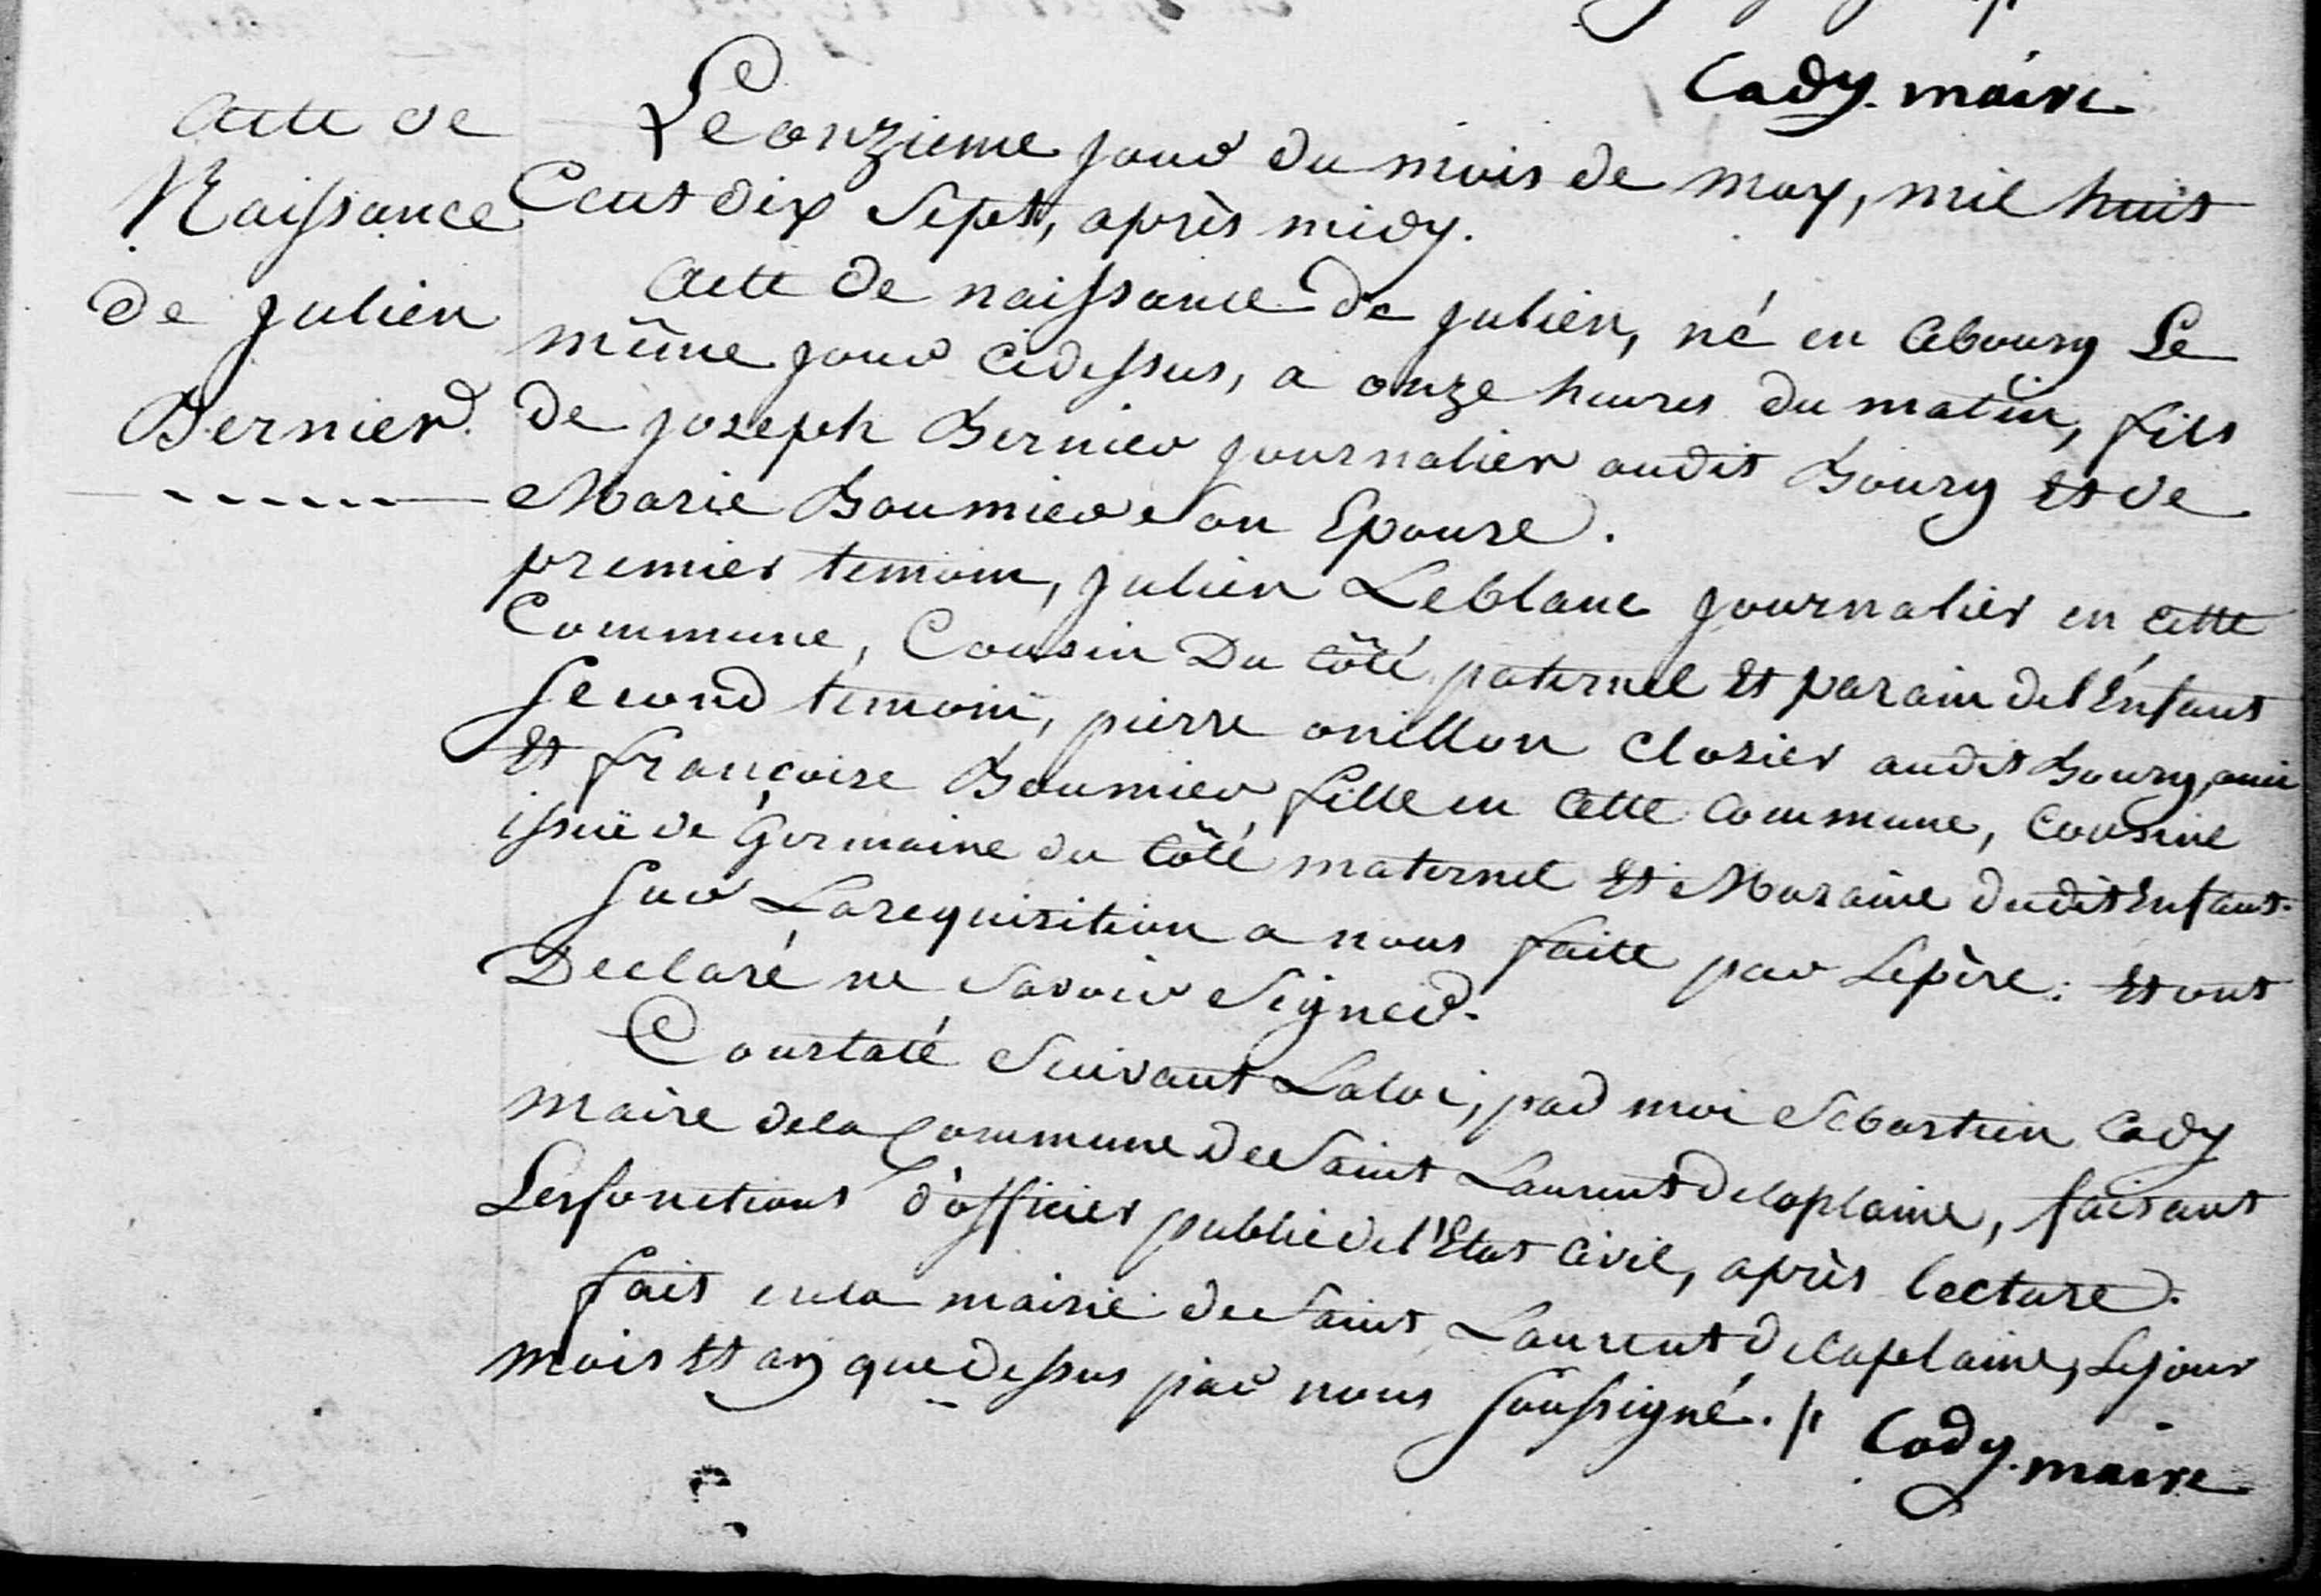 Cady. maire
acte de
Naissance
de julien
Bernier.
Le onzieme jour du mois de may, mil huit
Cent dix Sept, après midy.
acte de naissance de julien, né en cebourg Le
même jour cidessus, a onze heures du matin, fils
de joseph Bernier journalier audit Bourg et de
Marie Baumier son Epouse.
premier temoin, julien Leblanc journalier en cette
Commune, Cousin Du côté paternel et parain del'Enfant
Second temoin, pierre onillon closier audit Bourg, ami
et françoise Baumier fille en cette commune, cousine
issuë de Germaine du côté maternel et Maraine dudit enfant.
Sur Larequisition a nous faite par Lepère: et ont
Declaré ne Savoir Signer.
Constaté Suivant Laloi, par moi Sebastien Cady
maire dela Commune de Saint Laurent delaplaine, faisant
Lesfonctions d'officier public del'Etat civil, après lecture.
fait enla mairie de Saint Laurent delaplaine, Lejour
mois et an que dessus par nous Soussigné.
Cady. maire